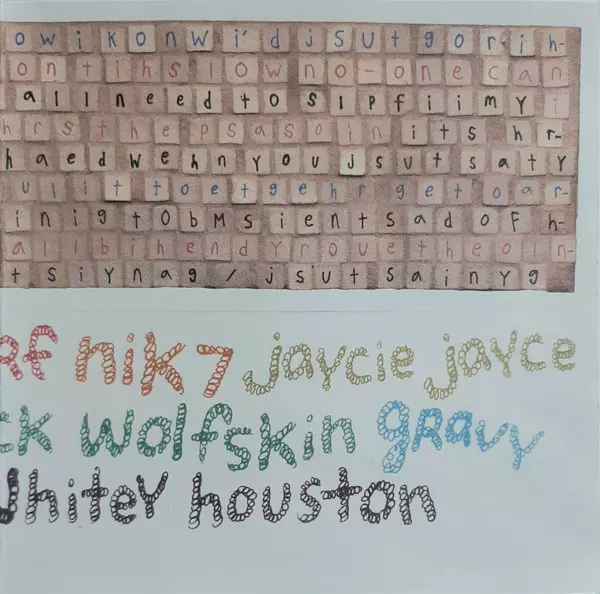 owikonWi'djSUtgorih-
ontihslowno-onecan
allneedtoSlPfiimYi
hrsthepsasoinitshr-
haedwehnyoujsutsatY
ulittoetgehrgetoar-
inigtObMsientsadoFh-
allbihendYrouetheoln-
tSiYnag/jsutsainYg
RF nik7 jaycie jayce
ck wolfskin gRavy
WhiteY houston